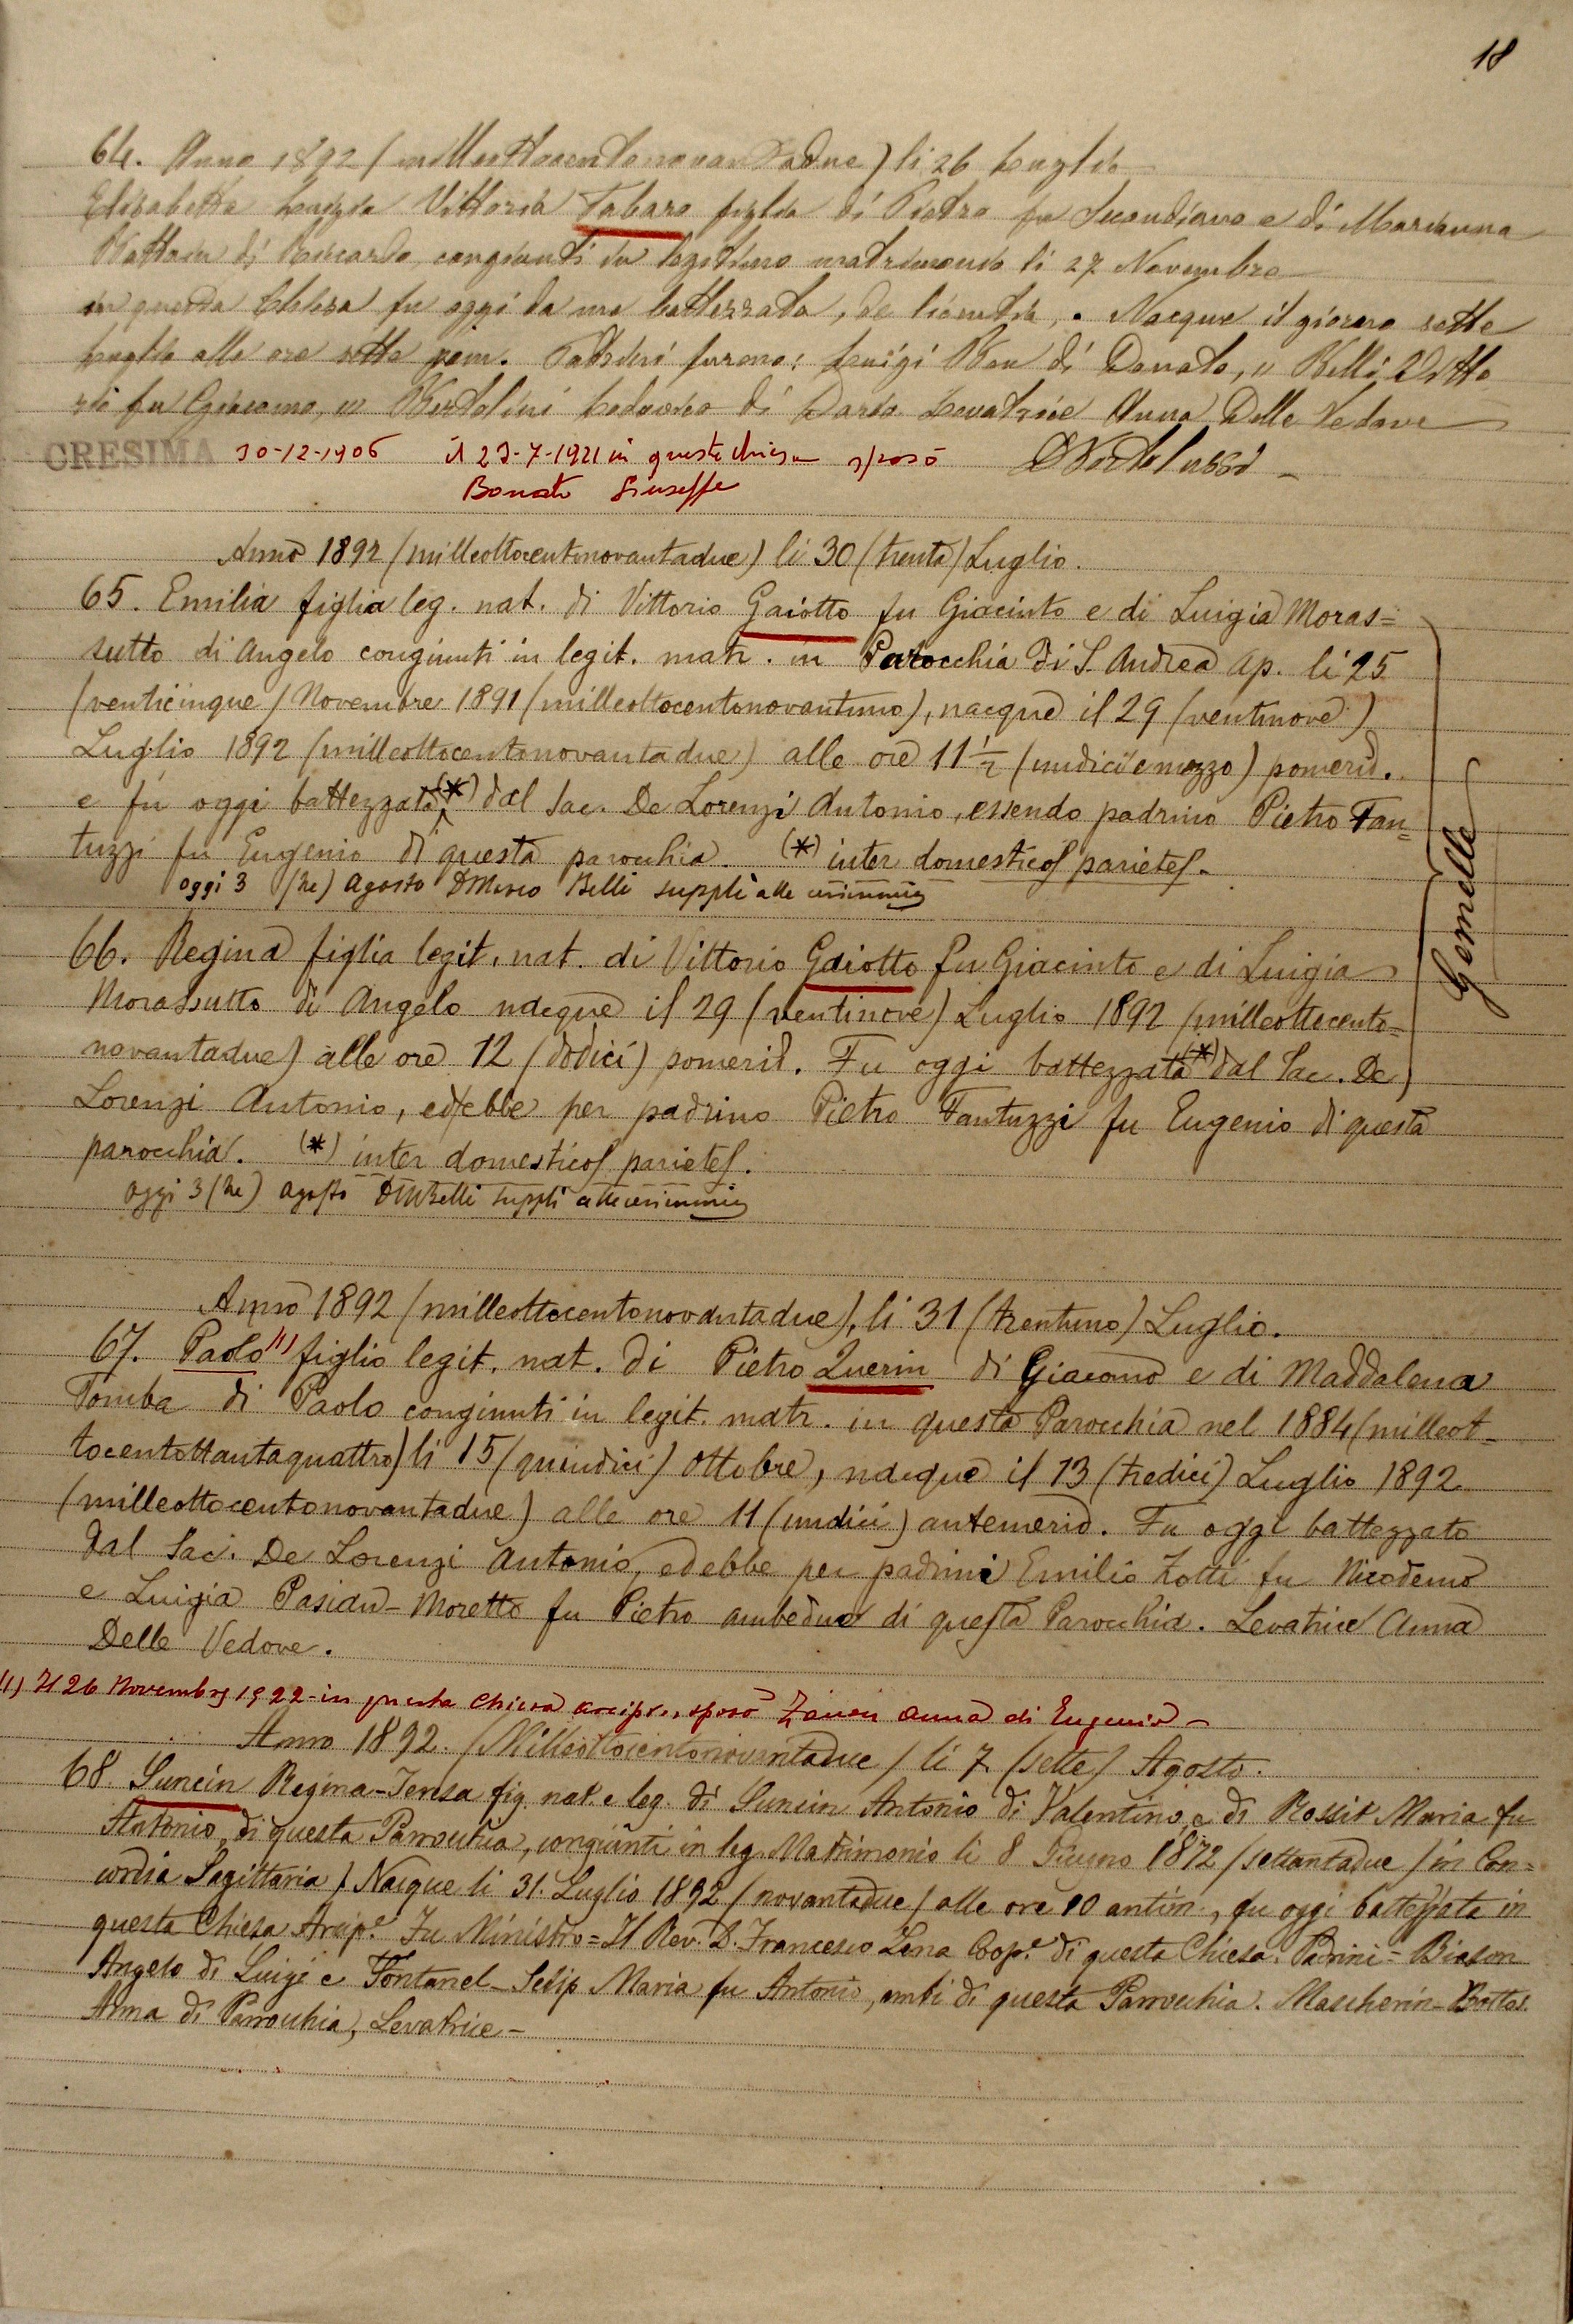 18
64. Anno 1892 (milleottocentonovantadue) li 26 Luglio
Elisabetta Luigia Vittoria Tabaro figlia di Pietro fu Secondiano e di Marianna
di Riccardo, congiunti in legitimo matrimonio li 27 Novembre
in questa Chiesa fu oggi da me battezzata, . Nacque il giorno sette
Luglio alle ore sette pom. Padrini furono: Luigi di Donato, " Belli Vitto
rio fu Giacomo, " Bertolini Lodovico di Dario Levatrice Anna Delle Vedove
CRESIMA 30-12-1906 il 23-7-1921 in questa chiesa sposò
Bonato Giuseppe
Anno 1892 (milleottocentonovantadue) li 30 (trenta) Luglio.
65. Emilia figlia leg. nat. di Vittorio Gaiotto fu Giacinto e di Luigia Moras=
sutto di Angelo congiunti in legit. matr. in Parocchia di S. Andrea Ap. li 25
(venticinque) Novembre 1891 (milleottocentonovantuno), nacque il 29 (ventinove)
Luglio 1892 (milleottocentonovantadue) alle ore 11 1/2 (undici e mezzo) pomerid.
e fu oggi battezzata (*) dal Sac. De Lorenzi Antonio, essendo padrino Pietro Fan=
tuzzi fu Eugenio di questa parocchia. (*) inter domesticos parietes.
oggi 3 (tre) Agosto D Marco Belli supplì alle cerimonie
66. Regina figlia legit. nat. di Vittorio Gaiotto fu Giacinto e di Luigia
Morassutto di Angelo nacque il 29 (ventinove) Luglio 1892 (milleottocento=
novantadue) alle ore 12 (dodici) pomerid. Fu oggi battezzata (*) dal Sac. De
Lorenzi Antonio, ed ebbe per padrino Pietro Fantuzzi fu Eugenio di questa
parocchia. (*) inter domesticos parietes.
oggi 3 (tre) Agosto D M Belli supplì alle cerimonie
Gemelle
Anno 1892 (milleottocentonovantadue), li 31 (trentuno) Luglio.
67. Paolo (1) figlio legit. nat. di Pietro Querin di Giacomo e di Maddalena
Tomba di Paolo congiunti in legit. matr. in questa Parocchia nel 1884 (milleot-
tocentottantaquattro) li 15 (quindici) Ottobre, nacque il 13 (tredici) Luglio 1892
(milleottocentonovantadue) alle ore 11 (undici) antemerid. Fu oggi battezzato
dal Sac. De Lorenzi Antonio, ed ebbe per padrini Emilio Zotti fu Nicodemo
e Luigia Pasian-Moretto fu Pietro ambedue di questa Parocchia. Levatrice Anna
Delle Vedove.
(1) Il 26 Novembre 1922 - in questa Chiesa Arcipr., sposò Anna di Eugenio -
Anno 1892. (Milleottocentonovantadue) li 7 (sette) Agosto.
68. Suncin Regina-Teresa fig. nat. e leg. di Suncin Antonio di Valentino, e di Rossit Maria fu
Antonio, di questa Parrocchia, congiunti in leg. Matrimonio li 8 Giugno 1872 (settantadue) in Con=
cordia Sagittaria) Nacque li 31. Luglio 1892 (novantadue) alle ore 10 antim., fu oggi battezzata in
questa Chiesa Arcip.e Fu Ministro = Il Rev. D. Francesco Lena Coop.e di questa Chiesa. Padrini = Biason
Angelo di Luigi e Fontanel-Selip Maria fu Antonio, ambi di questa Parrocchia. Mascherin-Bottos
Anna di Parrocchia, Levatrice -